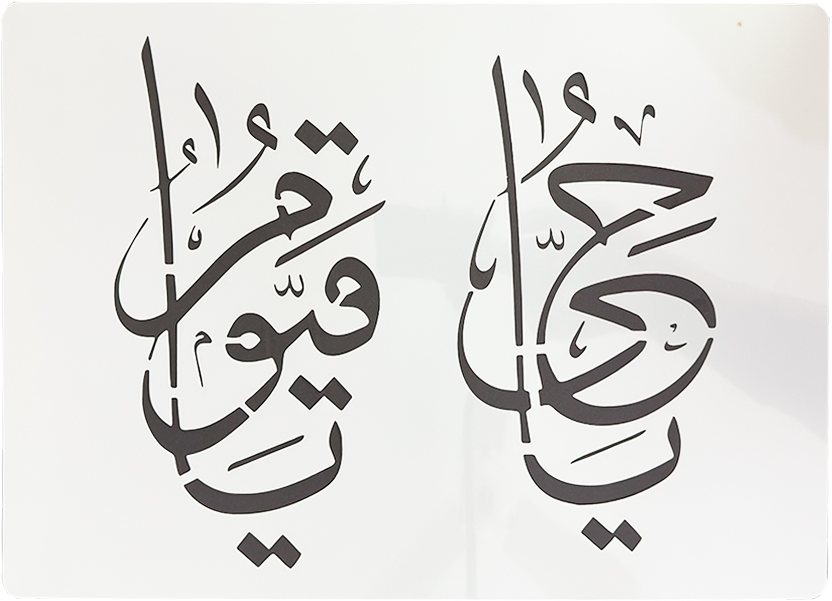 يا حَيُّ
يا قَيُّومُ